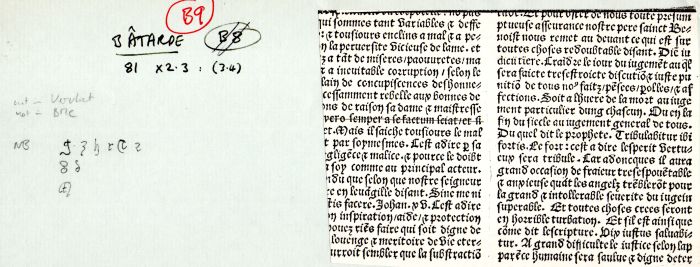 B9
BÂTARDE B8
81 x 2·3 : (3·4)
cut — Vervliet
mat — BMC
NB
qui sommes tant variables & deffe
& tousiours enclins a mal & a pe-
la peruersite vicieuse de lame. et
a tāt de miseres/paouuretes/ma
& a ineuitable corruption/selon le
lain de concupiscences deshonne-
cessamment rebelle aux bonnes de
ons de raison sa dame & maistresse
pers semper a se factum sciat et si
et. Mais il saiche tousiours le mal
t par soymesmes. Cest adire p sa
gligēce & malice. & pource le doibt
a soy comme au principal acteur.
ndu que selon nostre seigneur
re en leuāgille disant. Sine me ni
tis facere. Johan. xv. Cest adire
n inspiration/aide/& protection
pouez riēs faire qui soit digne de
louenge & meritoire de vie eter-
urroit sembler que la substractiō
ptueuse asseurance nostre pere sainct Be-
noist nous remet au deuant ce qui est sur
toutes choses redoubtable disant. Diē iu
dicii timere. Craidre le iour du iugemēt auql
sera faicte tresestroicte discutiō & iuste pu
nitiō de tous noz faitz/pēsees/polles/& af
fections. Soit a lheure de la mort au iuge
ment particulier dung chascun. Ou en la
fin du siecle au iugement general de tous.
Du quel dit le prophete. Tribulabitur ibi
fortis. Le fort: cest a dire lesperit vertu-
eux sera tribule. Car adoncques il aura
grand occasion de fraieur tresespouētable
& anxieuse quāt les angelz trēblerōt pour
la grand & intollerable seuerite du iugem
superable. Et toutes choses crees seront
en horrible turbation. Et sil est ainsi que
cōme dit lescripture. Vix iustus saluabi-
tur. A grand difficulte le iustice selon lap
parēce humaine sera saulue & digne deter